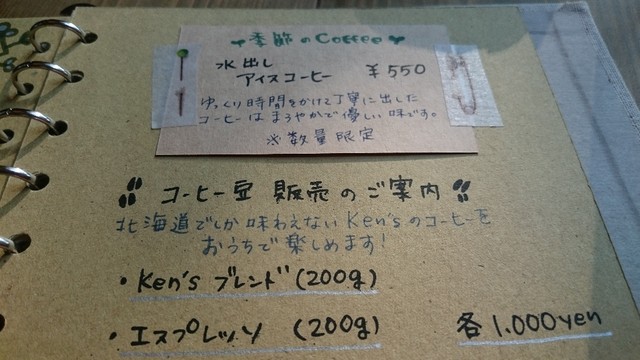 季節のCoffee
水出し
アイスコーヒー ¥550
ゆっくり時間をかけて丁寧に出した
コーヒーはまろやかで優しい味です。
※数量限定
コーヒー豆 販売のご案内
北海道でしか味わえないKen'sのコーヒーを
おうちで楽しめます!
・Ken's ブレンド (200g)
・エスプレッソ (200g) 各 1.000yen